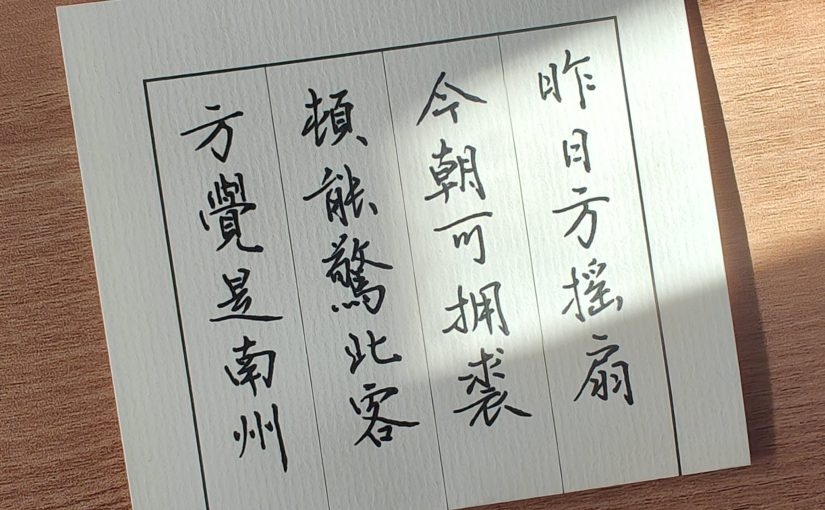 昨日方摇扇
今朝可拥裘
頓能驚此客
方覺是南州